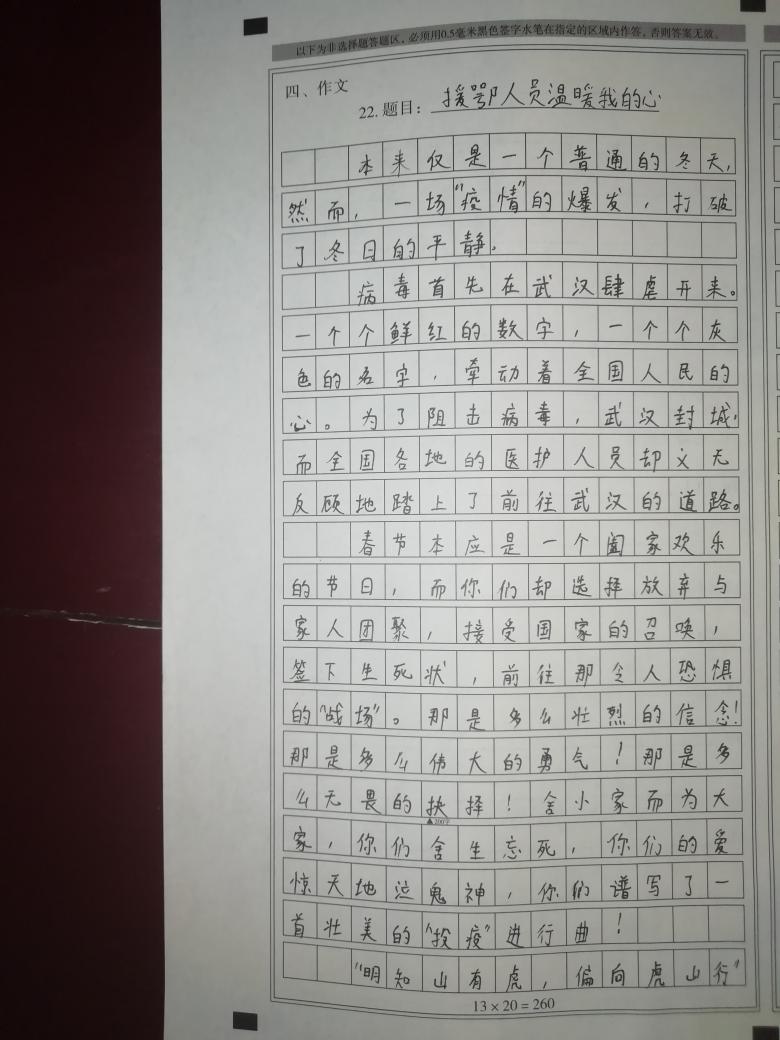 以下为非选择题答题区，必须用0.5毫米黑色签字水笔在指定的区域内作答，否则答案无效。
四、作文
22. 题目：援鄂人员温暖我的心
本来仅是一个普通的冬天，
然而，一场“疫情”的爆发，打破
了冬日的平静。
病毒首先在武汉肆虐开来。
一个个鲜红的数字，一个个灰
色的名字，牵动着全国人民的
心。为了阻击病毒，武汉封城，
而全国各地的医护人员却义无
反顾地踏上了前往武汉的道路。
春节本应是一个阖家欢乐
的节日，而你们却选择放弃与
家人团聚，接受国家的召唤，
签下生死状，前往那令人恐惧
的“战场”。那是多么壮烈的信念！
那是多么伟大的勇气！那是多
么无畏的抉择！舍小家而为大
▲200字
家，你们舍生忘死，你们的爱
惊天地泣鬼神，你们谱写了一
首壮美的“投疫”进行曲！
“明知山有虎，偏向虎山行”
13×20=260